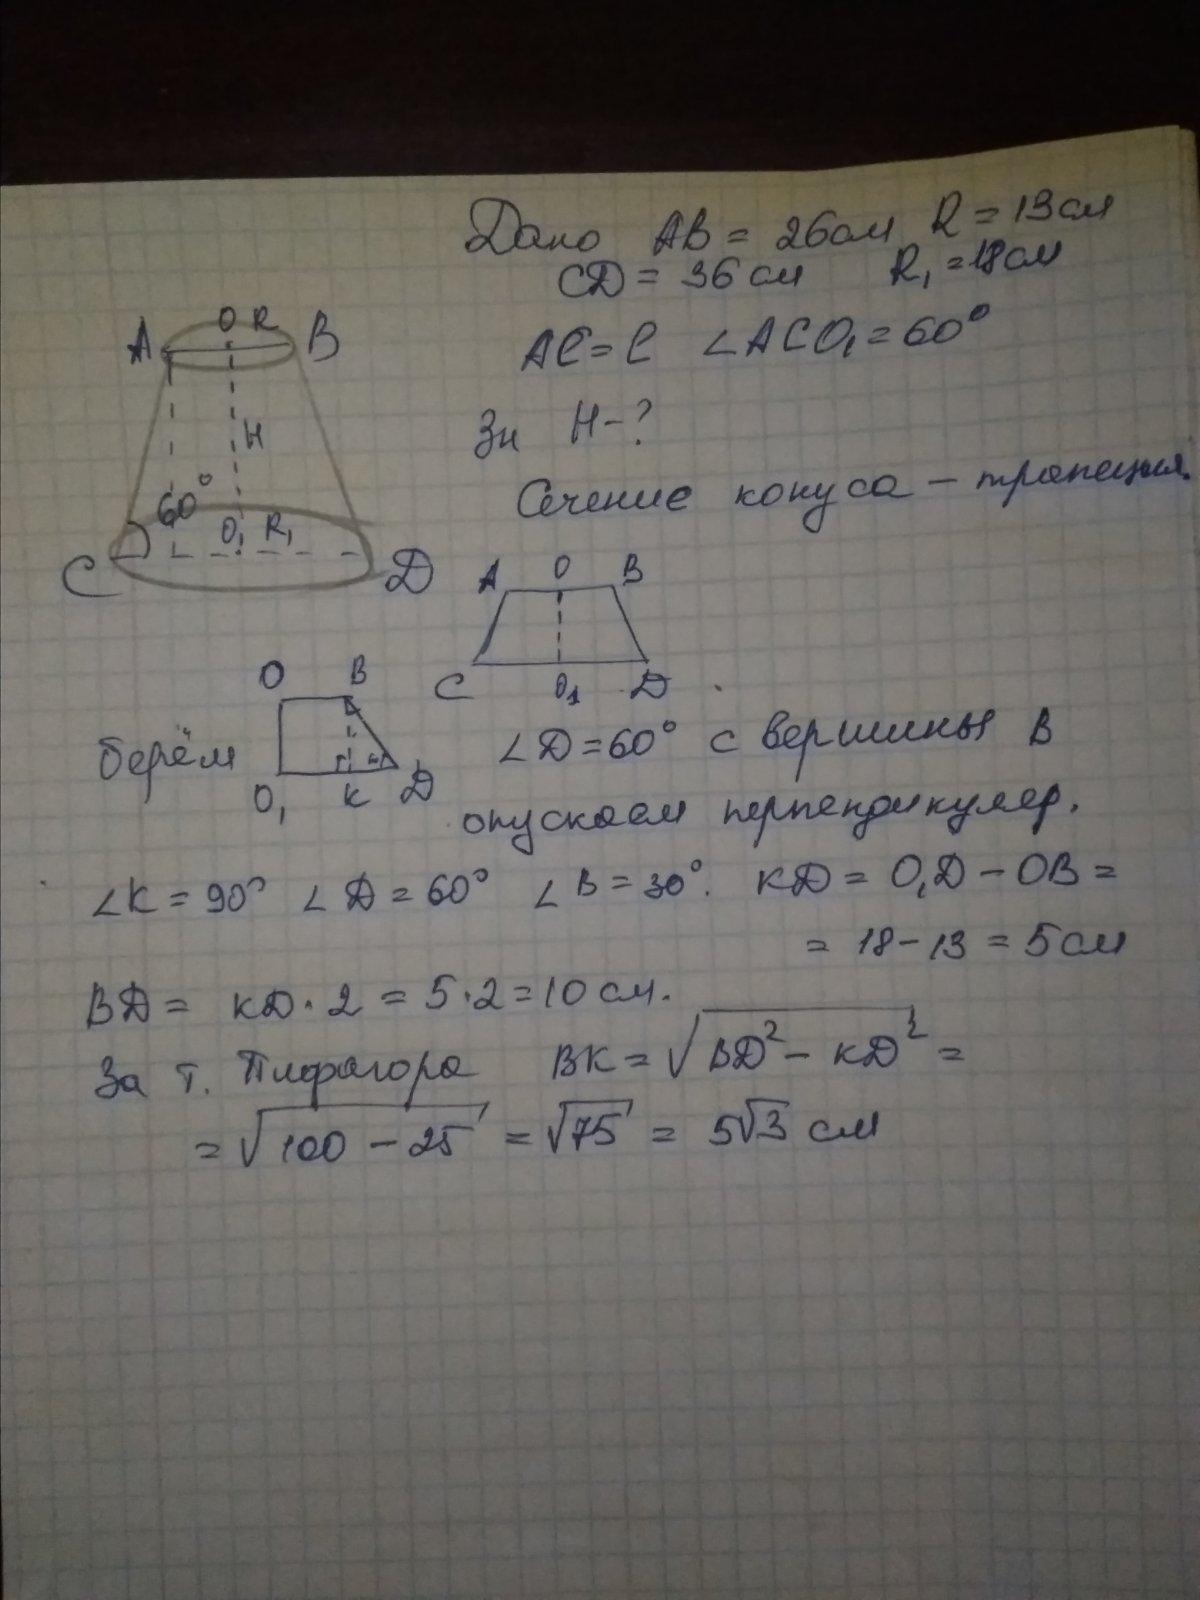 Дано AB = 26 см R = 13 см
CD = 36 см R₁ = 18 см
AC = C ∠ACO₁ = 60°
Зн H - ?
Сечение конуса – трапеция.
A O R B
H
60°
O₁ R₁
C D
A O B
C O₁ D
O B
берём
O₁ K D
∠D = 60° с вершины B
опускаем перпендикуляр.
∠K = 90° ∠D = 60° ∠B = 30°. KD = O₁D – OB =
= 18 – 13 = 5 см
BD = KD · 2 = 5 · 2 = 10 см.
За т. Пифагора BK = √(BD² – KD²) =
= √(100 – 25) = √75 = 5√3 см